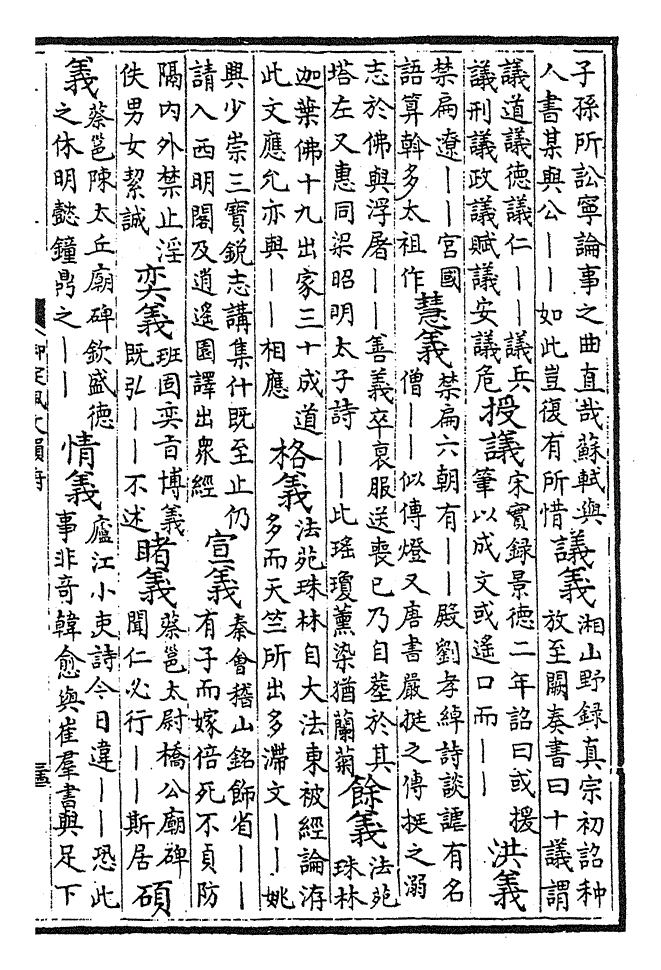 子孫所訟寧論事之曲直哉蘇軾與
人書某與公——如此豈復有所惜
議義
湘山野録真宗初詔种
放至闕奏書曰十議謂
議道議德議仁——議兵
議刑議政議賦議安議危
授議
宋實録景德二年詔曰或援
筆以成文或遥口而——
洪義
禁扁遼——宮國
語算斡多太祖作
慧義
禁扁六朝有——殿劉孝綽詩談謔有名
僧——似傳燈又唐書嚴挺之傳挺之溺
志於佛與浮屠——善義卒衰服送喪已乃自葬於其
塔左又惠同梁昭明太子詩——此瑤瓊薰染猶蘭菊
餘義
法苑
珠林
迦葉佛十九出家三十成道
此文應允亦與——相應
格義
法苑珠林自大法東被經論洊
多而天竺所出多滯文——姚
興少崇三寶鋭志講集什既至止仍
請入西明閣及逍遙園譯出衆經
宣義
秦會稽山銘飾省——
有子而嫁倍死不貞防
隔内外禁止淫
佚男女絜誠
奕義
班固奕旨博義
既弘——不述
睹義
蔡邕太尉橋公廟碑
聞仁必行——斯居
碩
義
蔡邕陳太丘廟碑欽盛德
之休明懿鐘鼎之——
情義
廬江小吏詩今日違——恐此
事非奇韓愈與崔羣書與足下
御定佩文韻府